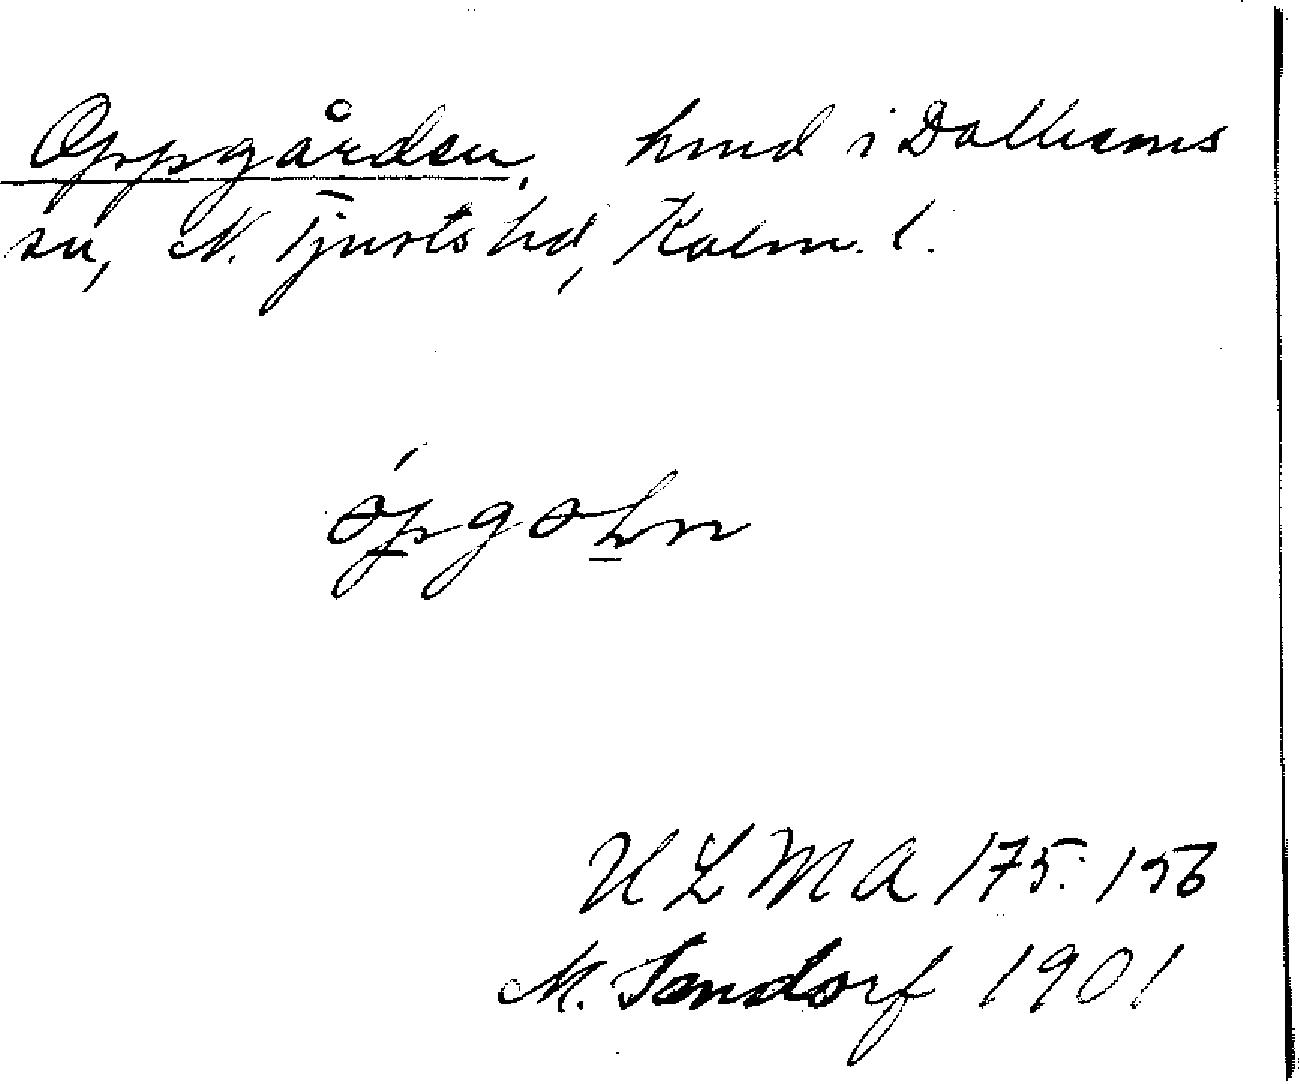 Oppgården, hmd i Dalhems
sn, N. Tjusts hd, Kalm. l.
ULMA 175: 156
M. Sandorf 1901